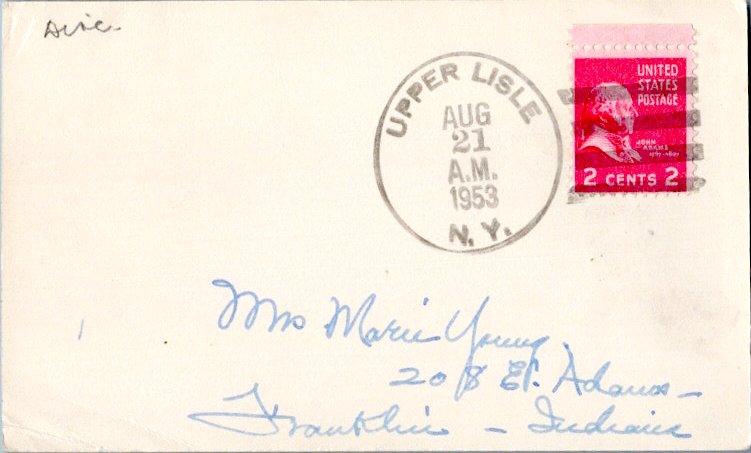 Disc.
UPPER LISLE
AUG
21
A.M.
1953
N.Y.
UNITED
STATES
POSTAGE
JOHN
ADAMS
1797-1801
2 CENTS 2
Mrs Marie Young
208 E. Adams -
Franklin - Indiana